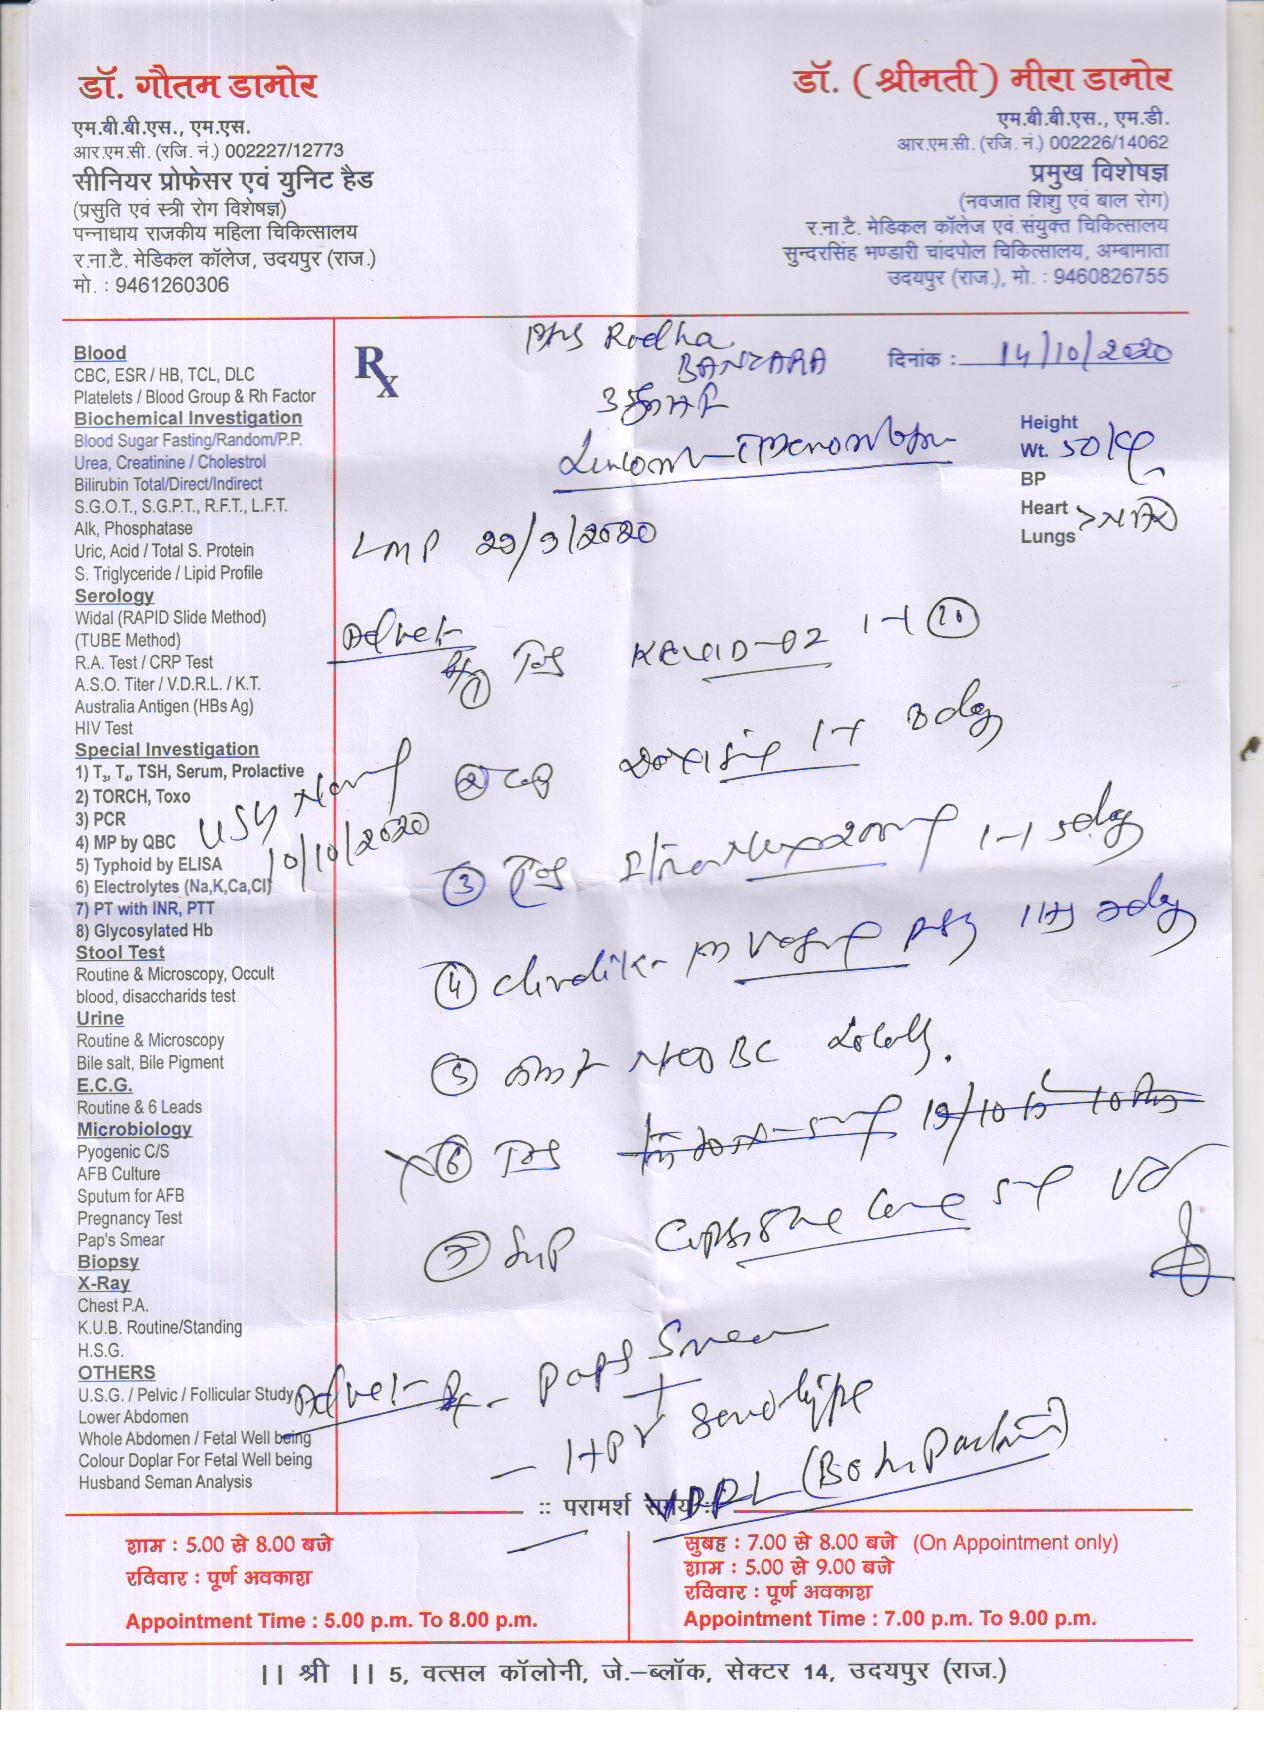 डॉ. गौतम डामोर
एम.बी.बी.एस., एम.एस.
आर.एम.सी. (रजि. नं.) 002227/12773
सीनियर प्रोफेसर एवं युनिट हैड
(प्रसुति एवं स्त्री रोग विशेषज्ञ)
पन्नाधाय राजकीय महिला चिकित्सालय
र.ना.टै. मेडिकल कॉलेज, उदयपुर (राज.)
मो. : 9461260306
डॉ. (श्रीमती) मीरा डामोर
एम.बी.बी.एस., एम.डी.
आर.एम.सी. (रजि. नं.) 002226/14062
प्रमुख विशेषज्ञ
(नवजात शिशु एवं बाल रोग)
र.ना.टै. मेडिकल कॉलेज एवं संयुक्त चिकित्सालय
सुन्दरसिंह भण्डारी चांदपोल चिकित्सालय, अम्बामाता
उदयपुर (राज.), मो. : 9460826755
Blood
CBC, ESR / HB, TCL, DLC
Platelets / Blood Group & Rh Factor
Biochemical Investigation
Blood Sugar Fasting/Random/P.P.
Urea, Creatinine / Cholestrol
Bilirubin Total/Direct/Indirect
S.G.O.T., S.G.P.T., R.F.T., L.F.T.
Alk, Phosphatase
Uric, Acid / Total S. Protein
S. Triglyceride / Lipid Profile
Serology
Widal (RAPID Slide Method)
(TUBE Method)
R.A. Test / CRP Test
A.S.O. Titer / V.D.R.L. / K.T.
Australia Antigen (HBs Ag)
HIV Test
Special Investigation
1) T₃, T₄, TSH, Serum, Prolactive
2) TORCH, Toxo
3) PCR
4) MP by QBC
5) Typhoid by ELISA
6) Electrolytes (Na,K,Ca,Cl)
7) PT with INR, PTT
8) Glycosylated Hb
Stool Test
Routine & Microscopy, Occult
blood, disaccharids test
Urine
Routine & Microscopy
Bile salt, Bile Pigment
E.C.G.
Routine & 6 Leads
Microbiology
Pyogenic C/S
AFB Culture
Sputum for AFB
Pregnancy Test
Pap's Smear
Biopsy
X-Ray
Chest P.A.
K.U.B. Routine/Standing
H.S.G.
OTHERS
U.S.G. / Pelvic / Follicular Study
Lower Abdomen
Whole Abdomen / Fetal Well being
Colour Doplar For Fetal Well being
Husband Seman Analysis
Rx
Radha
BANZARA
दिनांक : 14/10/2020
Height
Wt. 50 kg
BP
Heart
Lungs
LMP 29/9/2020
USG
10/10/2020
② Cap
③
④
⑤ NEO BC Locally.
⑥ 19/10
⑦
Paps Smear
+
- HPV Serotype
VDRL
:: परामर्श समय ::
शाम : 5.00 से 8.00 बजे
रविवार : पूर्ण अवकाश
Appointment Time : 5.00 p.m. To 8.00 p.m.
सुबह : 7.00 से 8.00 बजे (On Appointment only)
शाम : 5.00 से 9.00 बजे
रविवार : पूर्ण अवकाश
Appointment Time : 7.00 p.m. To 9.00 p.m.
|| श्री || 5, वत्सल कॉलोनी, जे.–ब्लॉक, सेक्टर 14, उदयपुर (राज.)